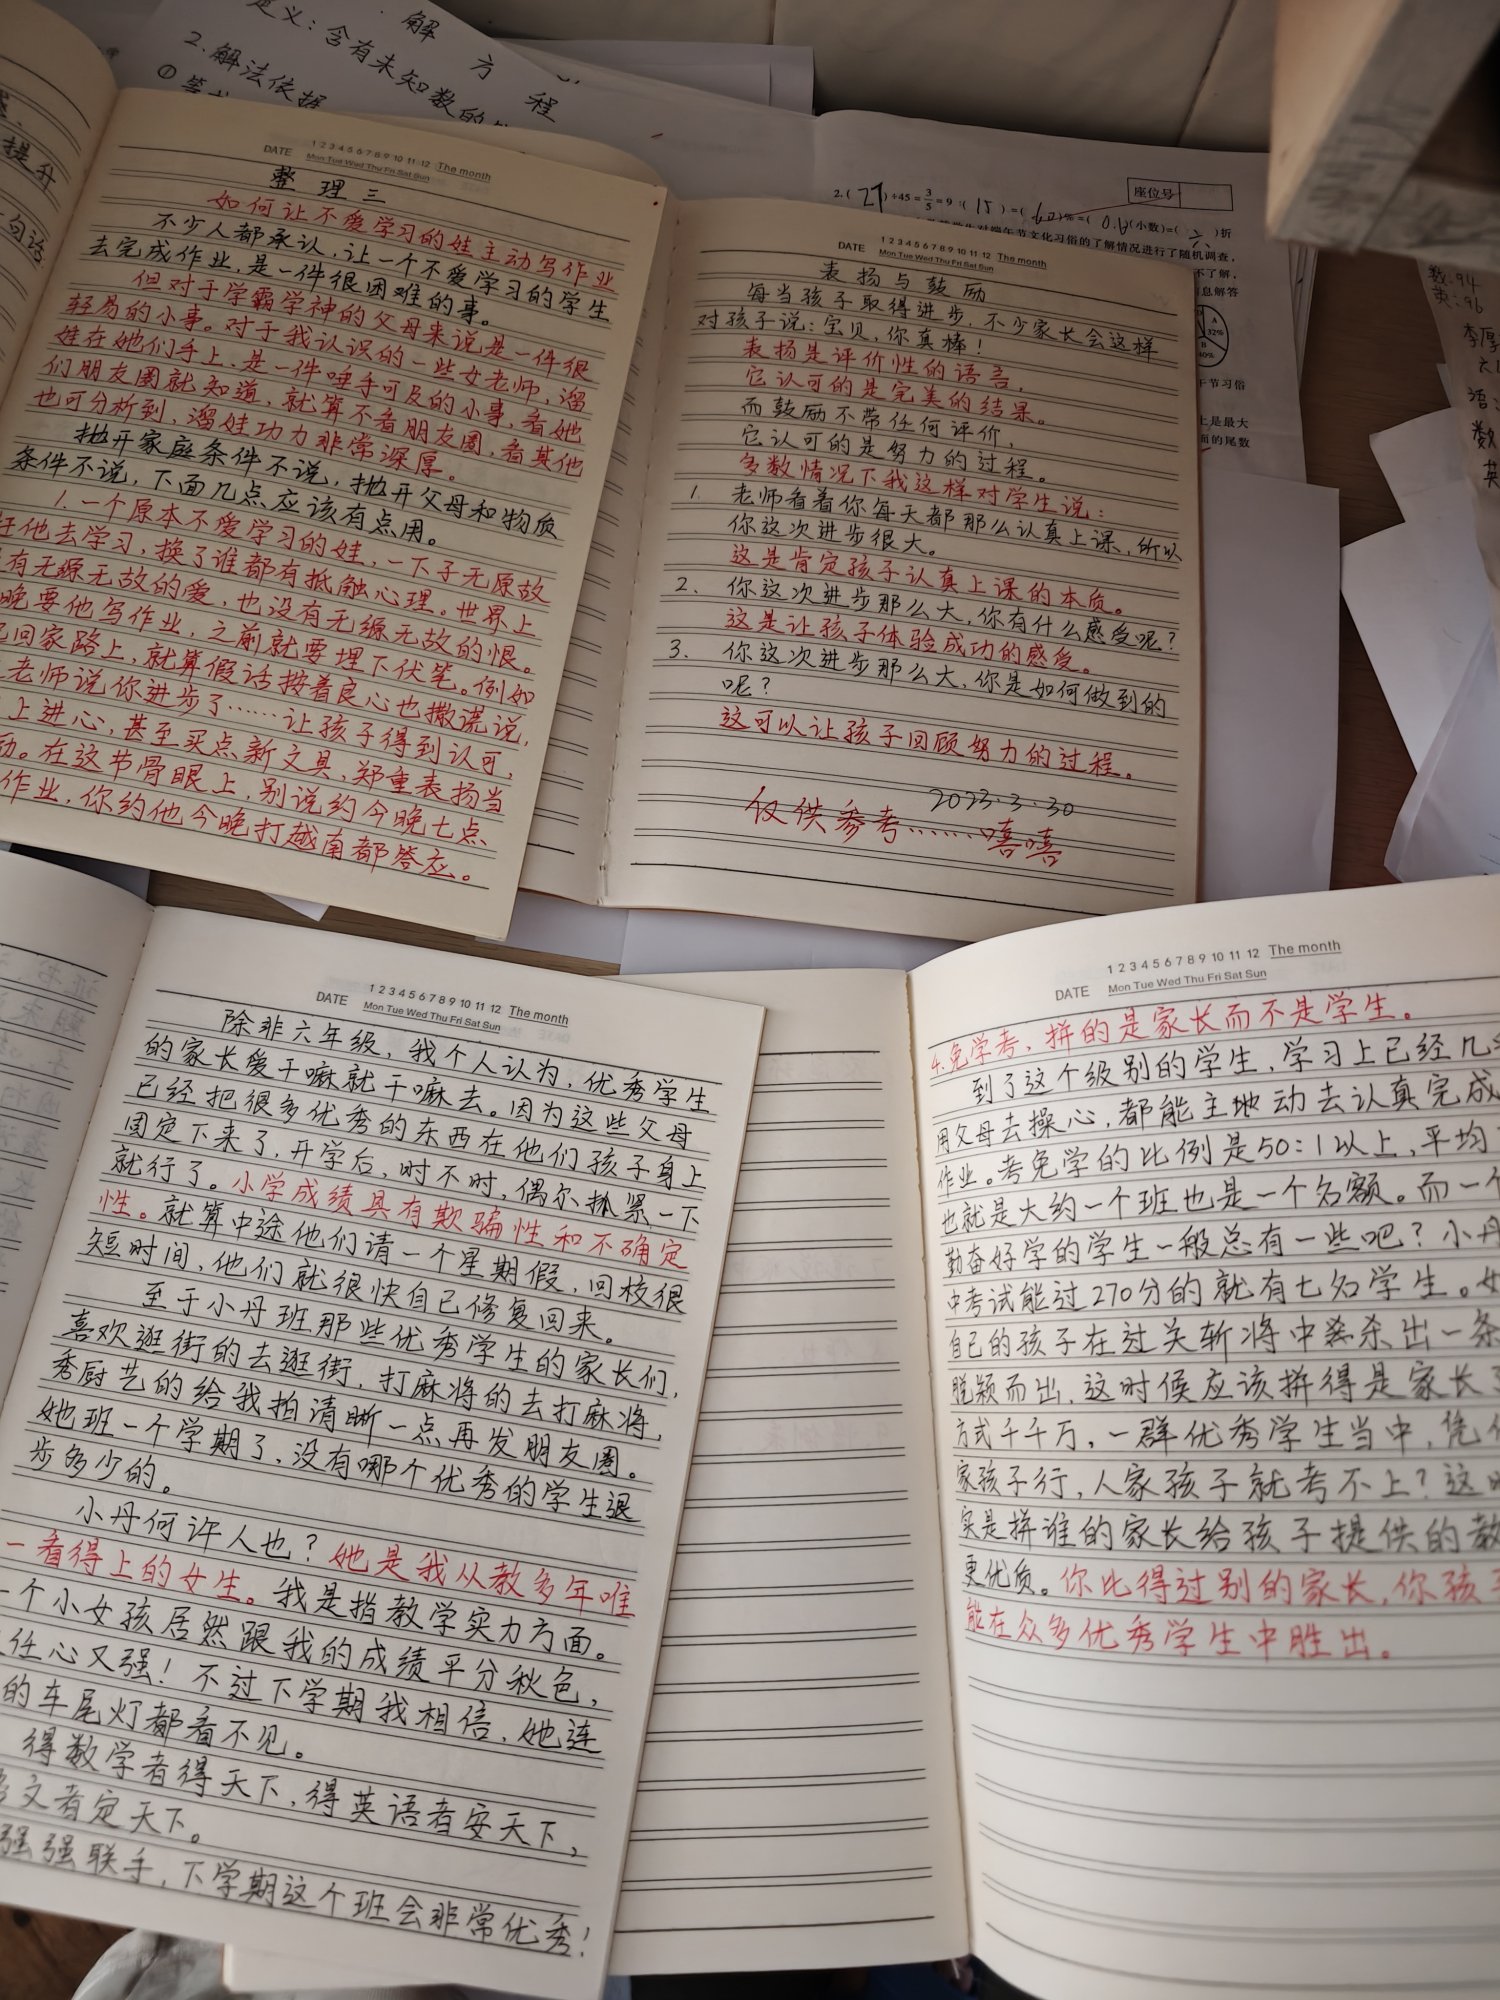 解方程
定义:含有未知数的
2.解法依据
提升
句话
DATE
1 2 3 4 5 6 7 8 9 10 11 12 The month
Mon Tue Wed Thu Fri Sat Sun
整理三
如何让不爱学习的娃主动写作业
不少人都承认,让一个不爱学习的学生
去完成作业,是一件很困难的事。
但对于学霸学神的父母来说是一件很
轻易的小事。对于我认识的一些女老师,溜
娃在她们手上,是一件唾手可及的小事,看她
们朋友圈就知道,就算不看朋友圈,看其他
也可分析到,溜娃功力非常深厚。
抛开家庭条件不说,抛开父母和物质
条件不说,下面几点应该有点用。
1.一个原本不爱学习的娃,一下子无原故
他去学习,换了谁都有抵触心理。世界上
有无缘无故的爱,也没有无缘无故的恨。
晚要他写作业,之前就要埋下伏笔。例如
回家路上,就算假话按着良心也撒谎说,
老师说你进步了……让孩子得到认可,
上进心,甚至买点新文具,郑重表扬当
励。在这节骨眼上,别说约今晚七点
作业,你约他今晚打越南都答应。
座位号
2.( 27 )÷45=3/5=9:( 15 )=( 60 )%=( 0.6 (小数)=( )折
对端午节文化习俗的了解情况进行了随机调查,
不了解,
息解答
A
32%
B
40%
午节习俗
上是最大
面的尾数
DATE
1 2 3 4 5 6 7 8 9 10 11 12 The month
Mon Tue Wed Thu Fri Sat Sun
表扬与鼓励
每当孩子取得进步,不少家长会这样
对孩子说:宝贝,你真棒!
表扬是评价性的语言,
它认可的是完美的结果。
而鼓励不带任何评价,
它认可的是努力的过程。
多数情况下我这样对学生说:
1. 老师看着你每天都那么认真上课,所以
你这次进步很大。
这是肯定孩子认真上课的本质。
2. 你这次进步那么大,你有什么感受呢?
这是让孩子体验成功的感受。
3. 你这次进步那么大,你是如何做到的
呢?
这可以让孩子回顾努力的过程。
2023.3.30
仅供参考……嘻嘻
数:94
英:96
李厚
语:
数
英
DATE
1 2 3 4 5 6 7 8 9 10 11 12 The month
Mon Tue Wed Thu Fri Sat Sun
除非六年级,我个人认为,优秀学生
的家长爱干嘛就干嘛去。因为这些父母
已经把很多优秀的东西在他们孩子身上
固定下来了,开学后,时不时,偶尔抓紧一下
就行了。小学成绩具有欺骗性和不确定
性。就算中途他们请一个星期假,回校很
短时间,他们就很快自己修复回来。
至于小丹班那些优秀学生的家长们,
喜欢逛街的去逛街,打麻将的去打麻将,
秀厨艺的给我拍清晰一点再发朋友圈。
她班一个学期了,没有哪个优秀的学生退
步多少的。
小丹何许人也?她是我从教多年唯
一看得上的女生。我是指教学实力方面。
一个小女孩居然跟我的成绩平分秋色,
任心又强!不过下学期我相信,她连
的车尾灯都看不见。
得数学者得天下,得英语者安天下,
文者定天下。
强强联手,下学期这个班会非常优秀!
DATE
1 2 3 4 5 6 7 8 9 10 11 12 The month
Mon Tue Wed Thu Fri Sat Sun
4.免学考,拼的是家长而不是学生。
到了这个级别的学生,学习上已经几
用父母去操心,都能主地动去认真完成
作业。考免学的比例是50:1以上,平均
也就是大约一个班也是一个名额。而一个
勤奋好学的学生一般总有一些吧?小丹
中考试能过270分的就有七名学生。
自己的孩子在过关斩将中杀出一条
脱颖而出,这时候应该拼得是家长
方式千千万,一群优秀学生当中,凭什
家孩子行,人家孩子就考不上?这
实是拼谁的家长给孩子提供的教
更优质。你比得过别的家长,你孩
能在众多优秀学生中胜出。